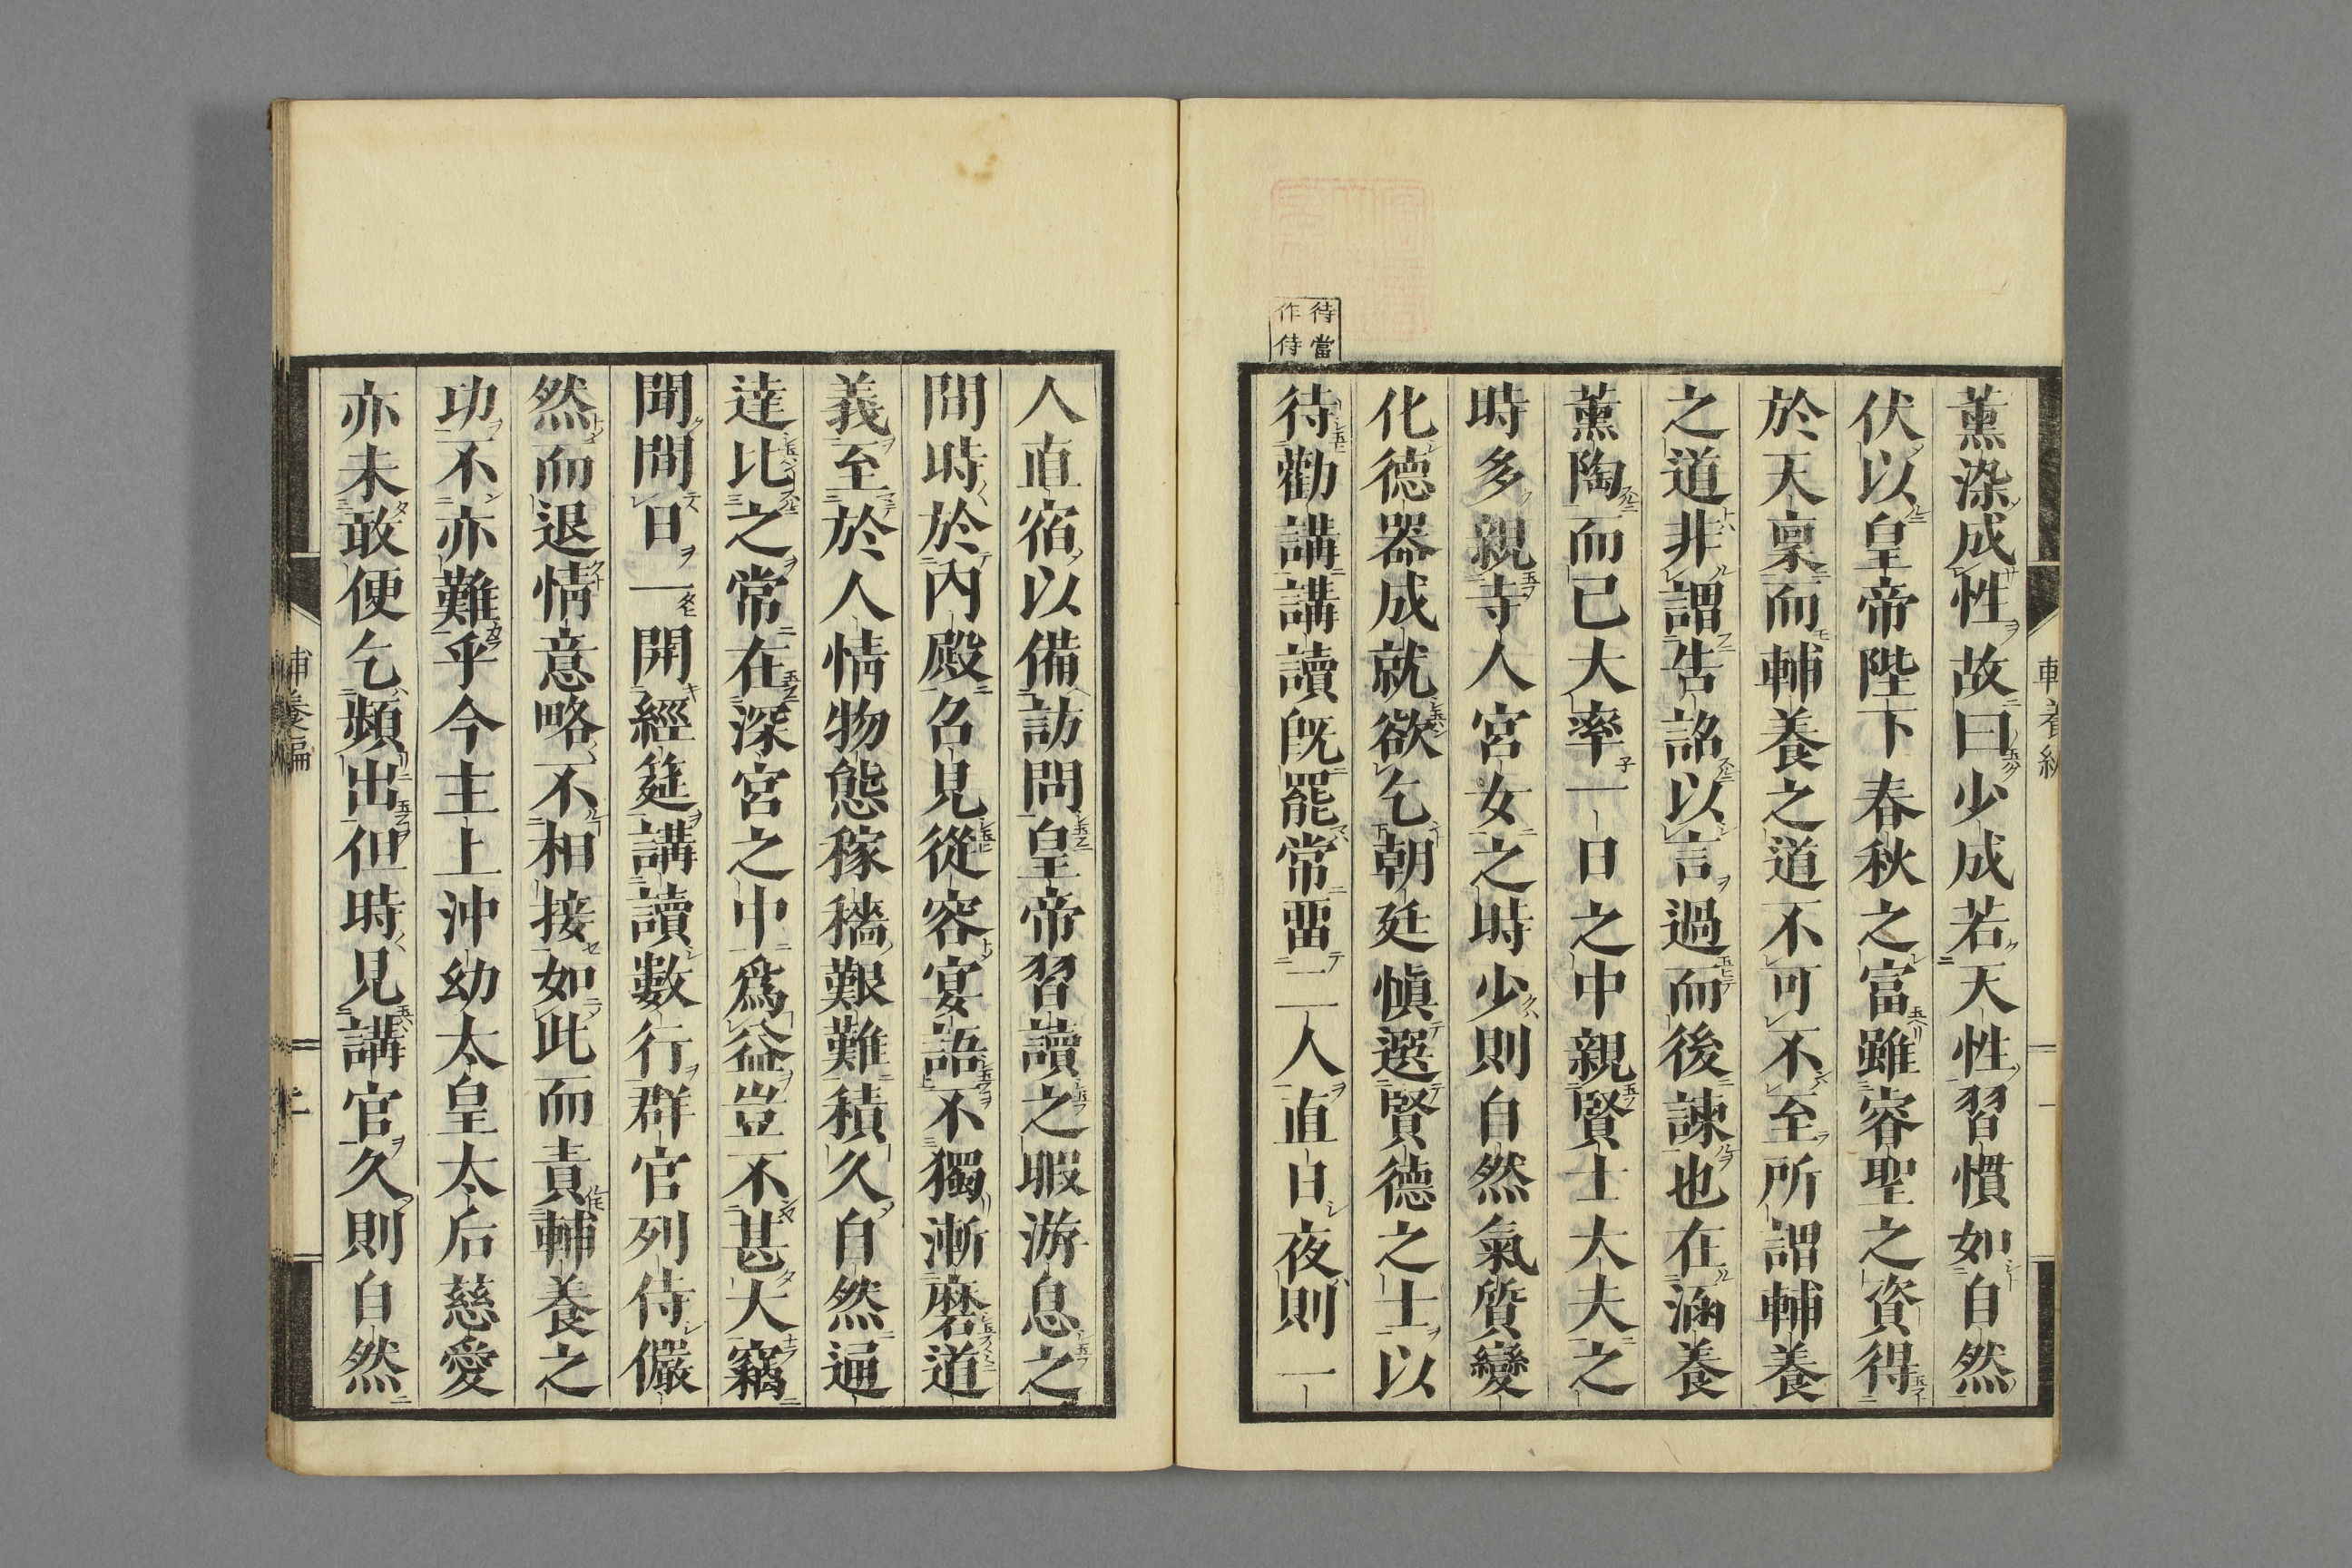 薰染成性故曰少成若天性習慣如自然
伏以皇帝陛下春秋之富雖睿聖之資得
於天稟而輔養之道不可不至所謂輔養
之道非謂告詔以言過而後諫也在涵養
薰陶而已大率一日之中親賢士大夫之
時多親寺人宮女之時少則自然氣質變
化德器成就欲乞朝廷愼選賢德之士以
待當
作侍
待勸講講讀旣罷常畱二人直日夜則一
人直宿以備訪問皇帝習讀之暇游息之
間時於內殿召見從容宴語不獨漸磨道
義至於人情物態稼穡艱難積久自然通
達比之常在深宮之中爲益豈不甚大竊
聞間日一開經筵講讀數行群官列侍儼
然而退情意略不相接如此而責輔養之
功不亦難乎今主上沖幼太皇太后慈愛
亦未敢便乞頻出但時見講官久則自然
輔養編
二